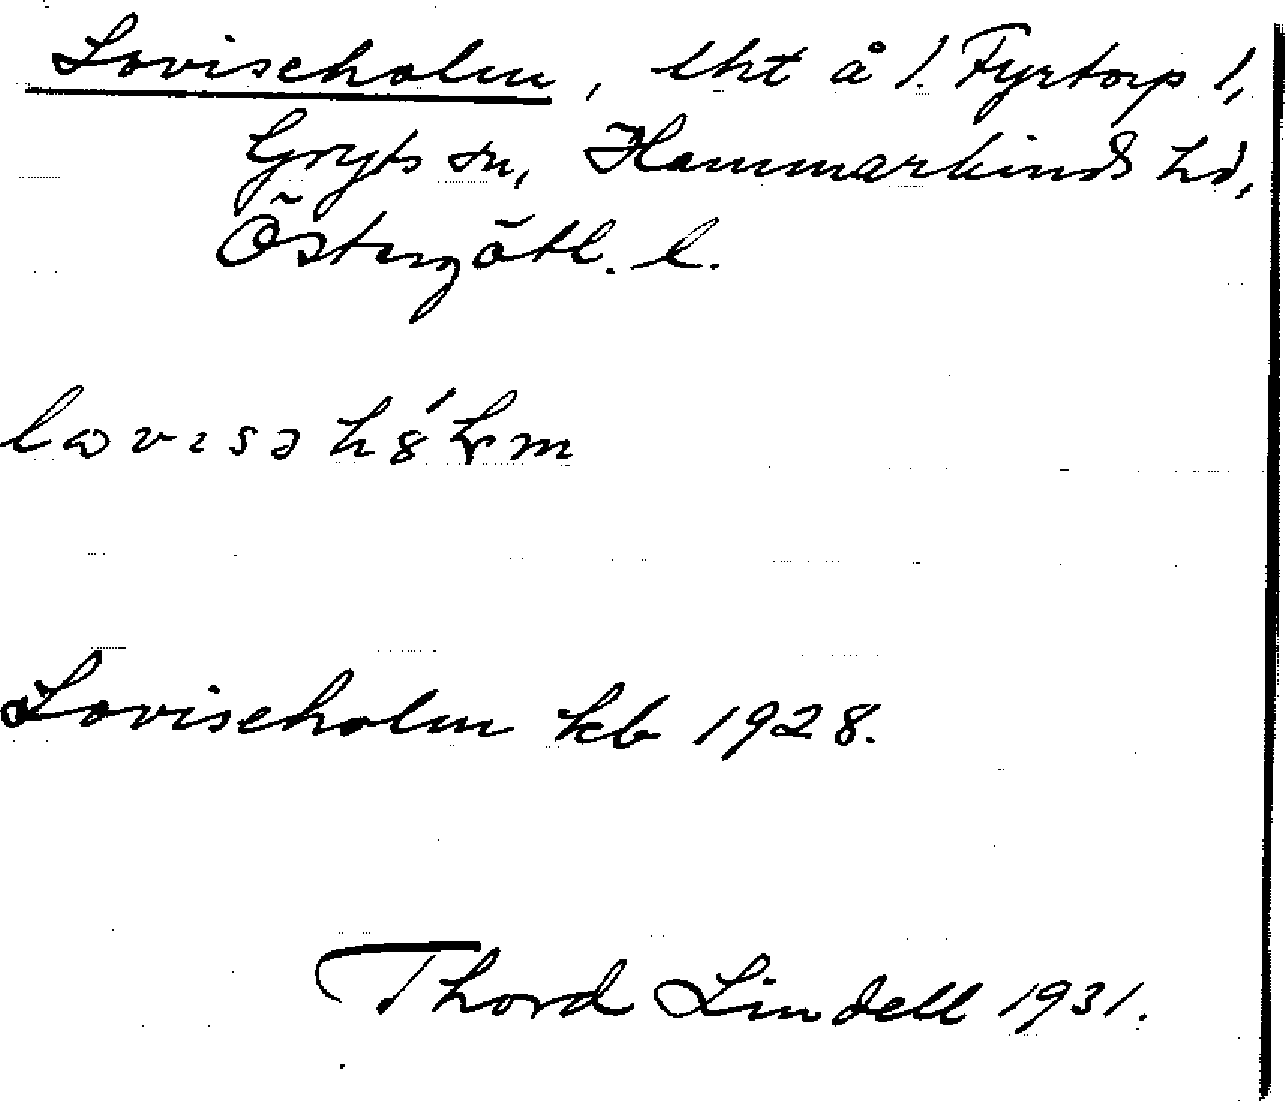 Loviseholm, lht å 1. Fyrtorp 1,
Gryts sn, Hammarkinds hd,
Östergötl. l.
Loviseholm kb 1928.
Thord Lindell 1931.